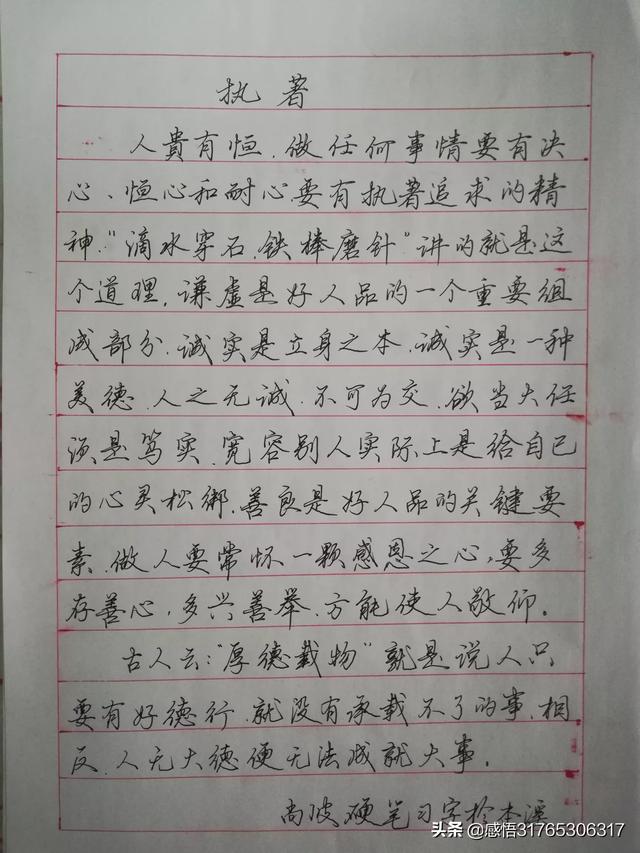 执著
人貴有恒.做任何事情要有决
心、恒心和耐心.要有执著追求的精
神."滴水穿石.铁棒磨针"讲的就是这
个道理,谦虚是好人品的一个重要组
成部分.诚实是立身之本.诚实是一种
美德.人之无诚.不可为交.欲当大任
须是笃实.宽容别人实际上是给自己
的心灵松绑.善良是好人品的关键要
素.做人要常怀一颗感恩之心,要多
存善心,多兴善举.方能使人敬仰.
古人云:"厚德载物"就是说人只
要有好德行.就没有承载不了的事.相
反.人无大德便无法成就大事.
尚波硬笔习字於本溪
头条@感悟31765306317